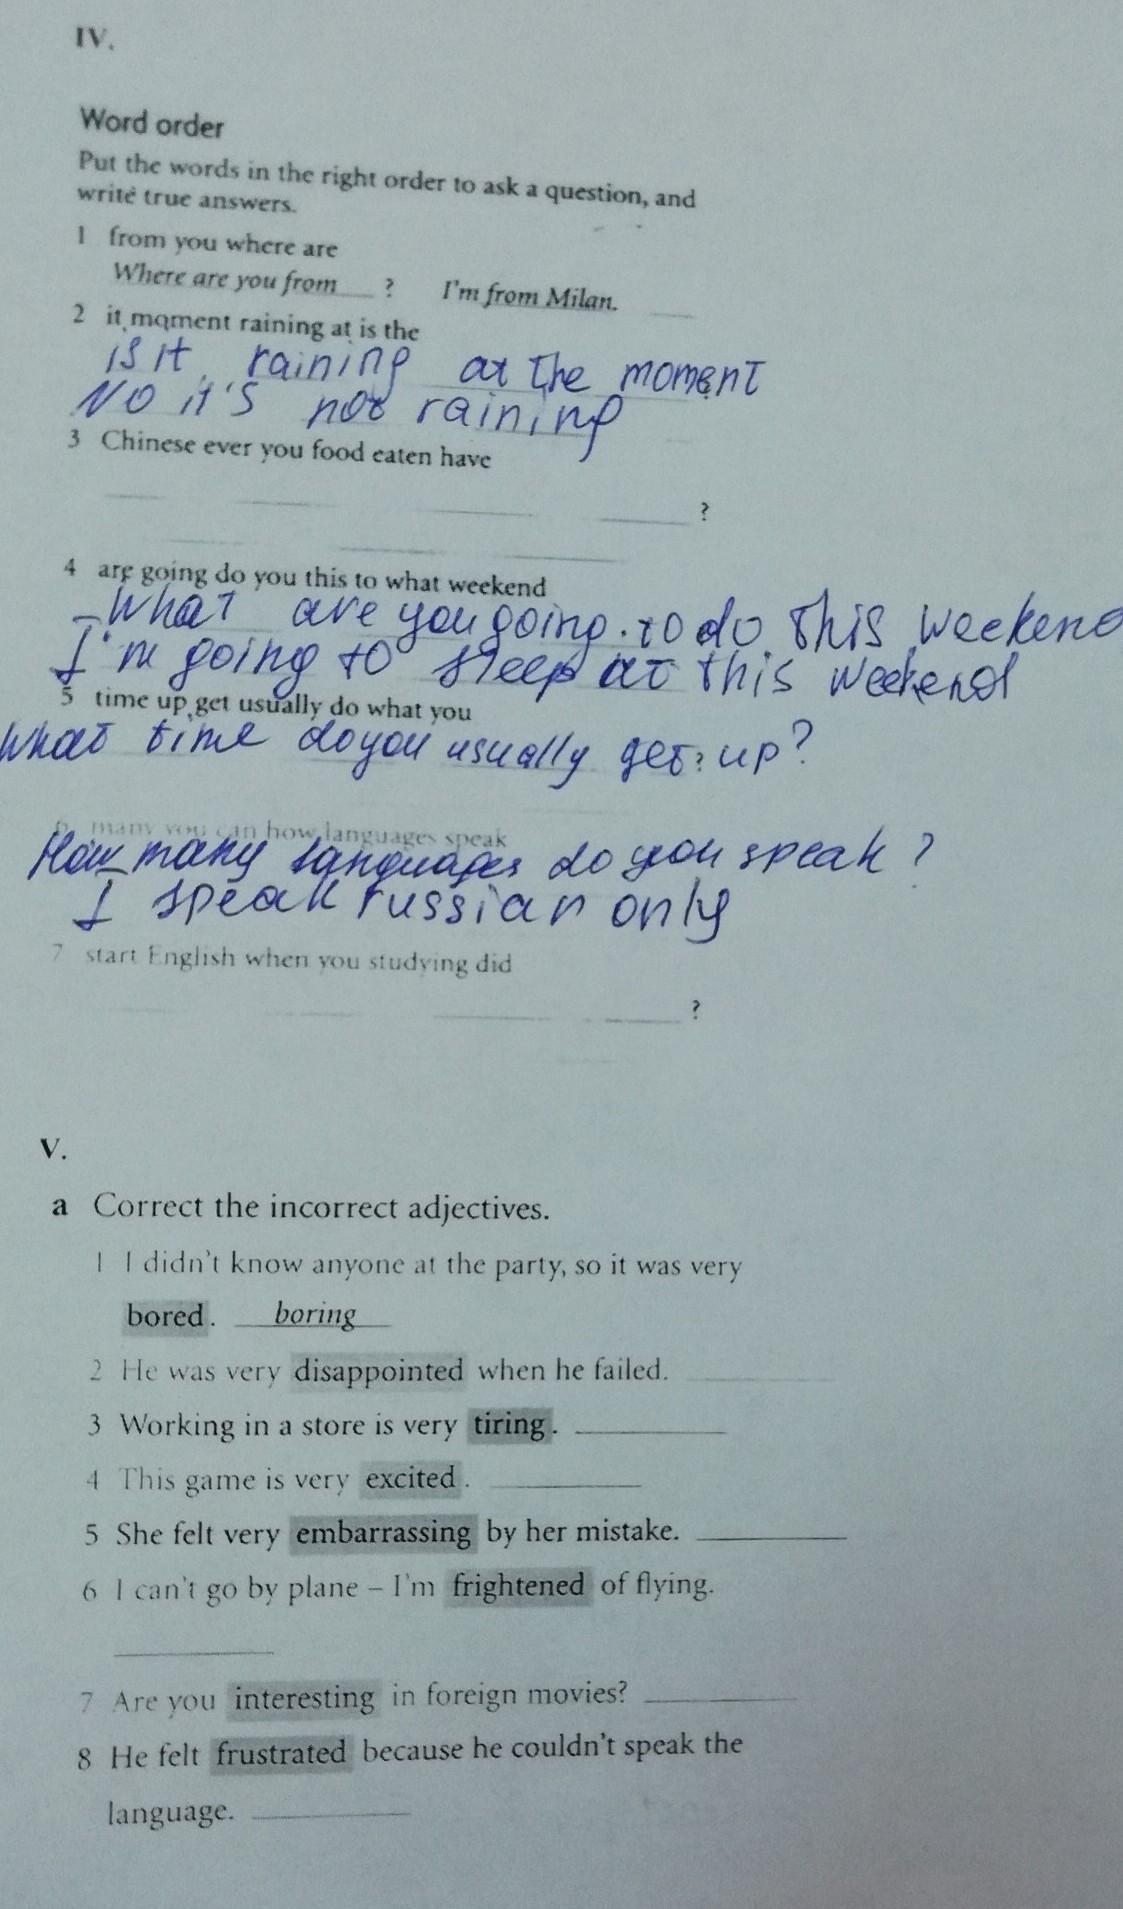 IV.
Word order
Put the words in the right order to ask a question, and
write true answers.
1 from you where are
Where are you from ? I'm from Milan.
2 it moment raining at is the
is it raining at the moment
NO it's not raining
3 Chinese ever you food eaten have
?
4 are going do you this to what weekend
What are you going to do this weekend
I'm going to sleep at this weekend
5 time up get usually do what you
What time do you usually get ? up?
6 many you can how languages speak
How many languages do you speak?
I speak russian only
7 start English when you studying did
?
V.
a Correct the incorrect adjectives.
1 I didn't know anyone at the party, so it was very
bored. boring
2 He was very disappointed when he failed.
3 Working in a store is very tiring.
4 This game is very excited.
5 She felt very embarrassing by her mistake.
6 I can't go by plane – I'm frightened of flying.
7 Are you interesting in foreign movies?
8 He felt frustrated because he couldn't speak the
language.